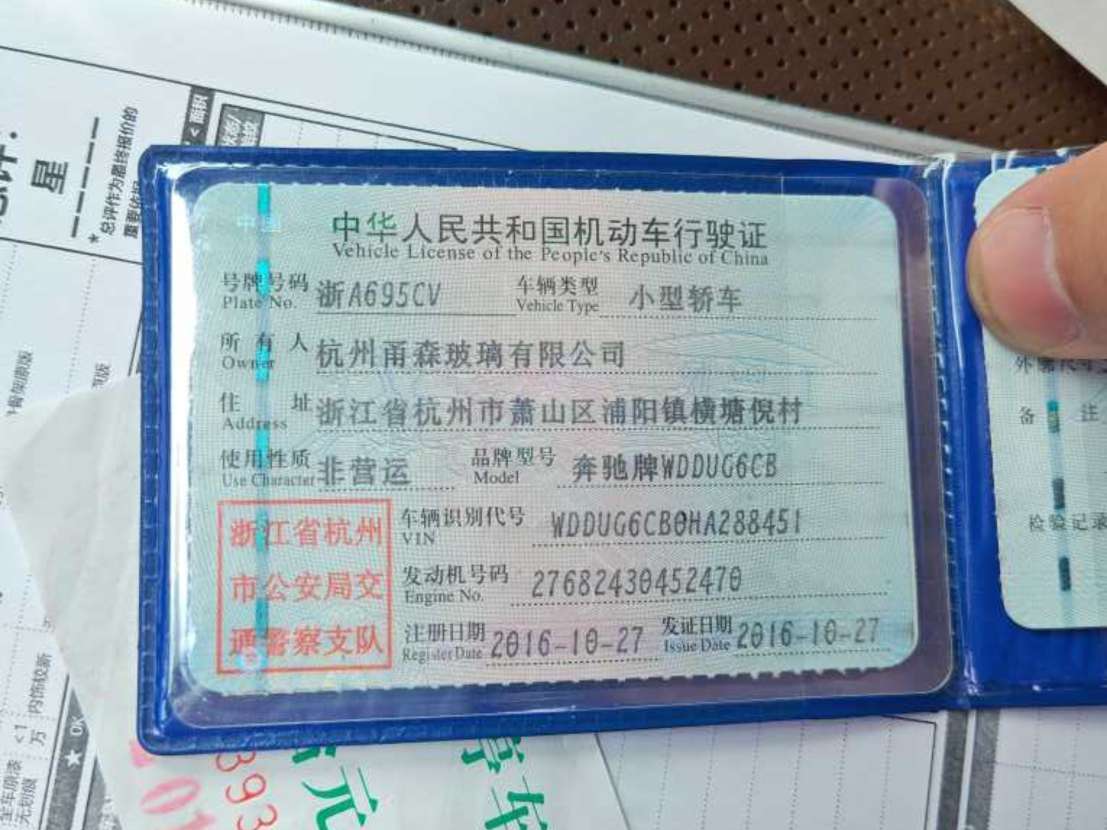 中华人民共和国机动车行驶证
Vehicle License of the People's Republic of China
号牌号码 浙A695CV 车辆类型 小型轿车
Plate No. Vehicle Type
所有人 杭州甬森玻璃有限公司
Owner
住址 浙江省杭州市萧山区浦阳镇横塘倪村
Address
使用性质 非营运 品牌型号 奔驰牌WDDUG6CB
Use Character Model
浙江省杭州
市公安局交
通警察支队
车辆识别代号 WDDUG6CB0HA288451
VIN
发动机号码 27682430452470
Engine No.
注册日期 2016-10-27 发证日期 2016-10-27
Register Date Issue Date
备注
检验记录
星
*总评作为最终报价的
重要依据
<面积
内饰较新
<1
万
★ OK
全车原漆
无划痕
元
停车
393